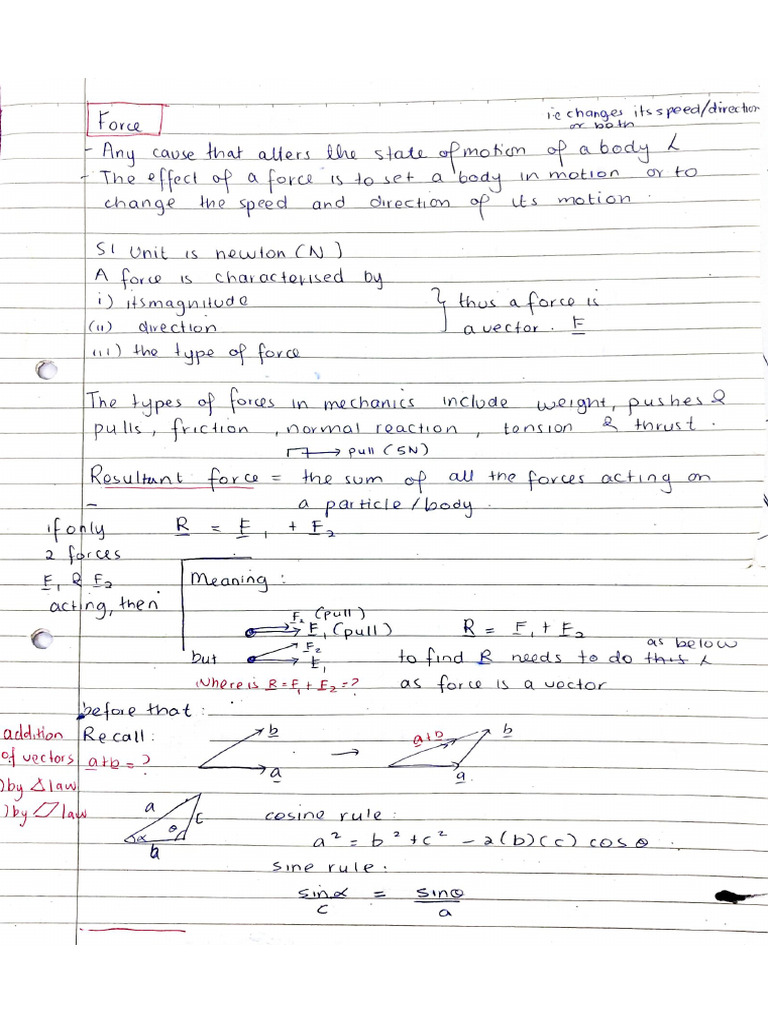 Force
ie changes its speed/direction
or both
- Any cause that alters the state of motion of a body
- The effect of a force is to set a body in motion or to
change the speed and direction of its motion.
SI Unit is newton (N)
A force is characterised by
i) its magnitude
(ii) direction
iii) the type of force
} thus a force is
a vector. F
The types of forces in mechanics include weight, pushes &
pulls, friction, normal reaction, tension & thrust.
→ pull (5N)
Resultant force = the sum of all the forces acting on
a particle/body.
if only
2 forces
F1 & F2
acting, then
R = F1 + F2
Meaning:
F2 (pull)
F1 (pull)
R = F1 + F2
but
F2
F1
as below
to find R needs to do this
Where is R = F1 + F2 = ?
as force is a vector
before that:
addition
of vectors
)by △ law
)by ▱ law
Recall:
a+b = ?
b
a
→
a+b
b
a
a
c
θ
α
b
cosine rule:
a² = b² + c² - 2(b)(c) cos θ.
sine rule:
sin α / c = sin θ / a